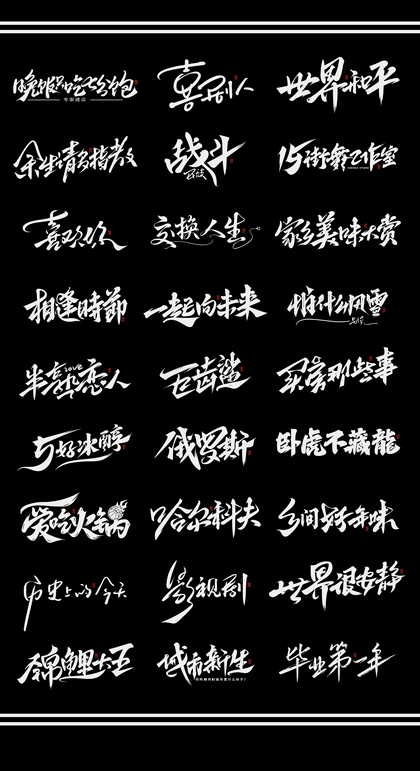 晚饭只吃七分饱
专家建议
喜剧人
世界和平
余生请多指教
战斗
民族
15街舞工作室
喜欢你
交换人生
家乡美味大赏
相逢時節
一起向未来
怕什么风雪
半熟恋人
love
巨齿鲨
买房那些事
5好冰醇
俄罗斯
卧虎不藏龍
爱吃火锅
哈尔科夫
乡间好年味
历史上的今天
影视剧
世界很安静
锦鲤大王
城市新生
毕业第一年